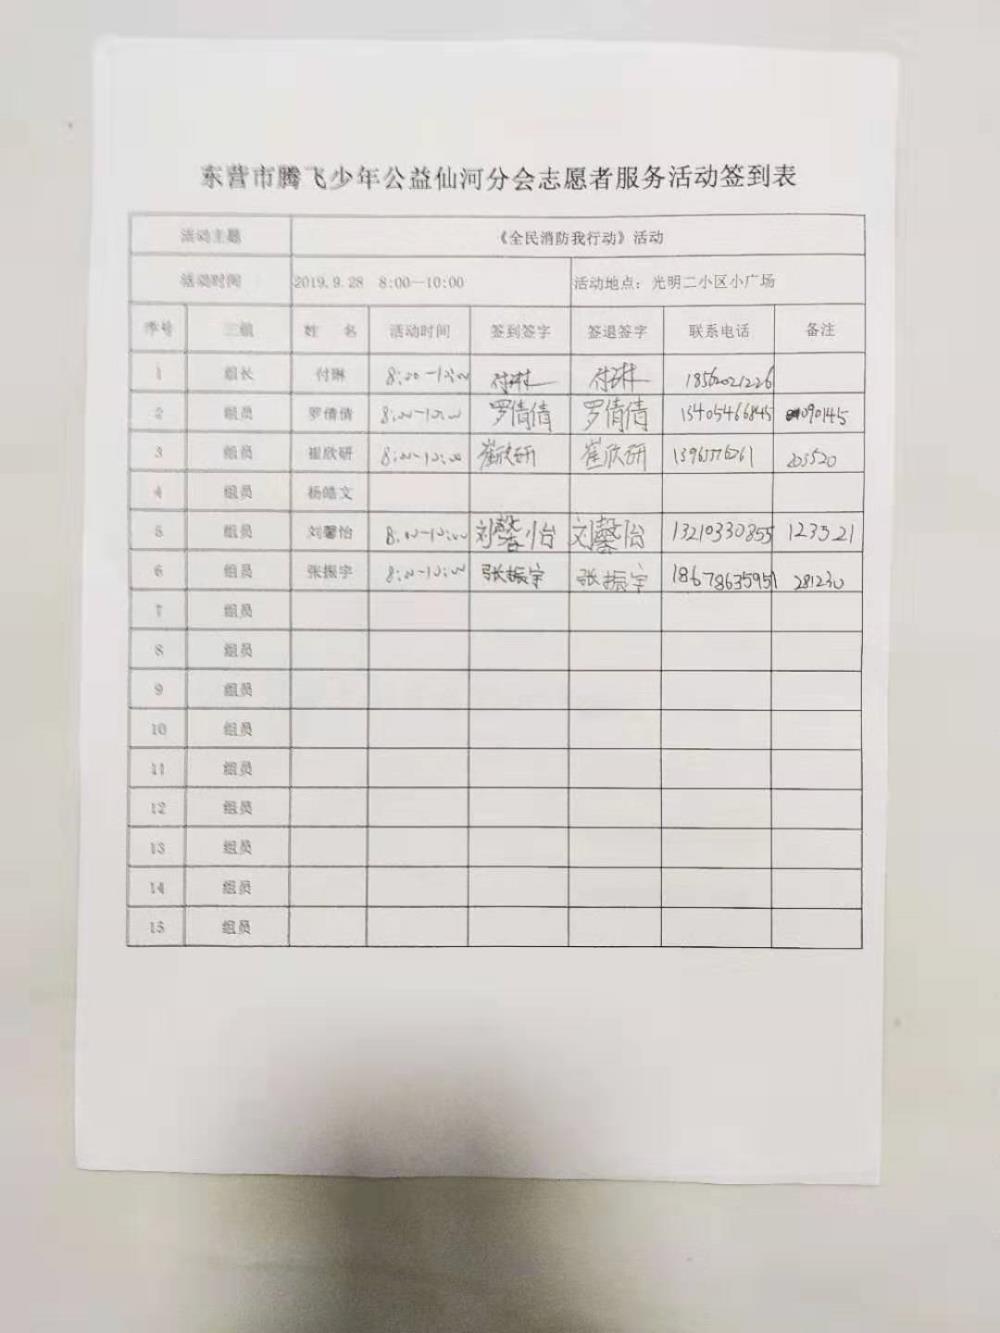 东营市腾飞少年公益仙河分会志愿者服务活动签到表
活动主题 《全民消防我行动》活动
活动时间 2019.9.28 8:00—10:00 活动地点：光明二小区小广场
序号 三组 姓 名 活动时间 签到签字 签退签字 联系电话 备注
1 组长 付琳 8:00-10:00 付琳 付琳 18562021226
2 组员 罗倩倩 8:00-10:00 罗倩倩 罗倩倩 13405466845 090145
3 组员 崔欣研 8:00-10:00 崔欣研 崔欣研 203520
4 组员 杨皓文
5 组员 刘馨怡 8:00-10:00 刘馨怡 刘馨怡 13210330855 123521
6 组员 张振宇 8:00-10:00 张振宇 张振宇 18678635951 281230
7 组员
8 组员
9 组员
10 组员
11 组员
12 组员
13 组员
14 组员
15 组员